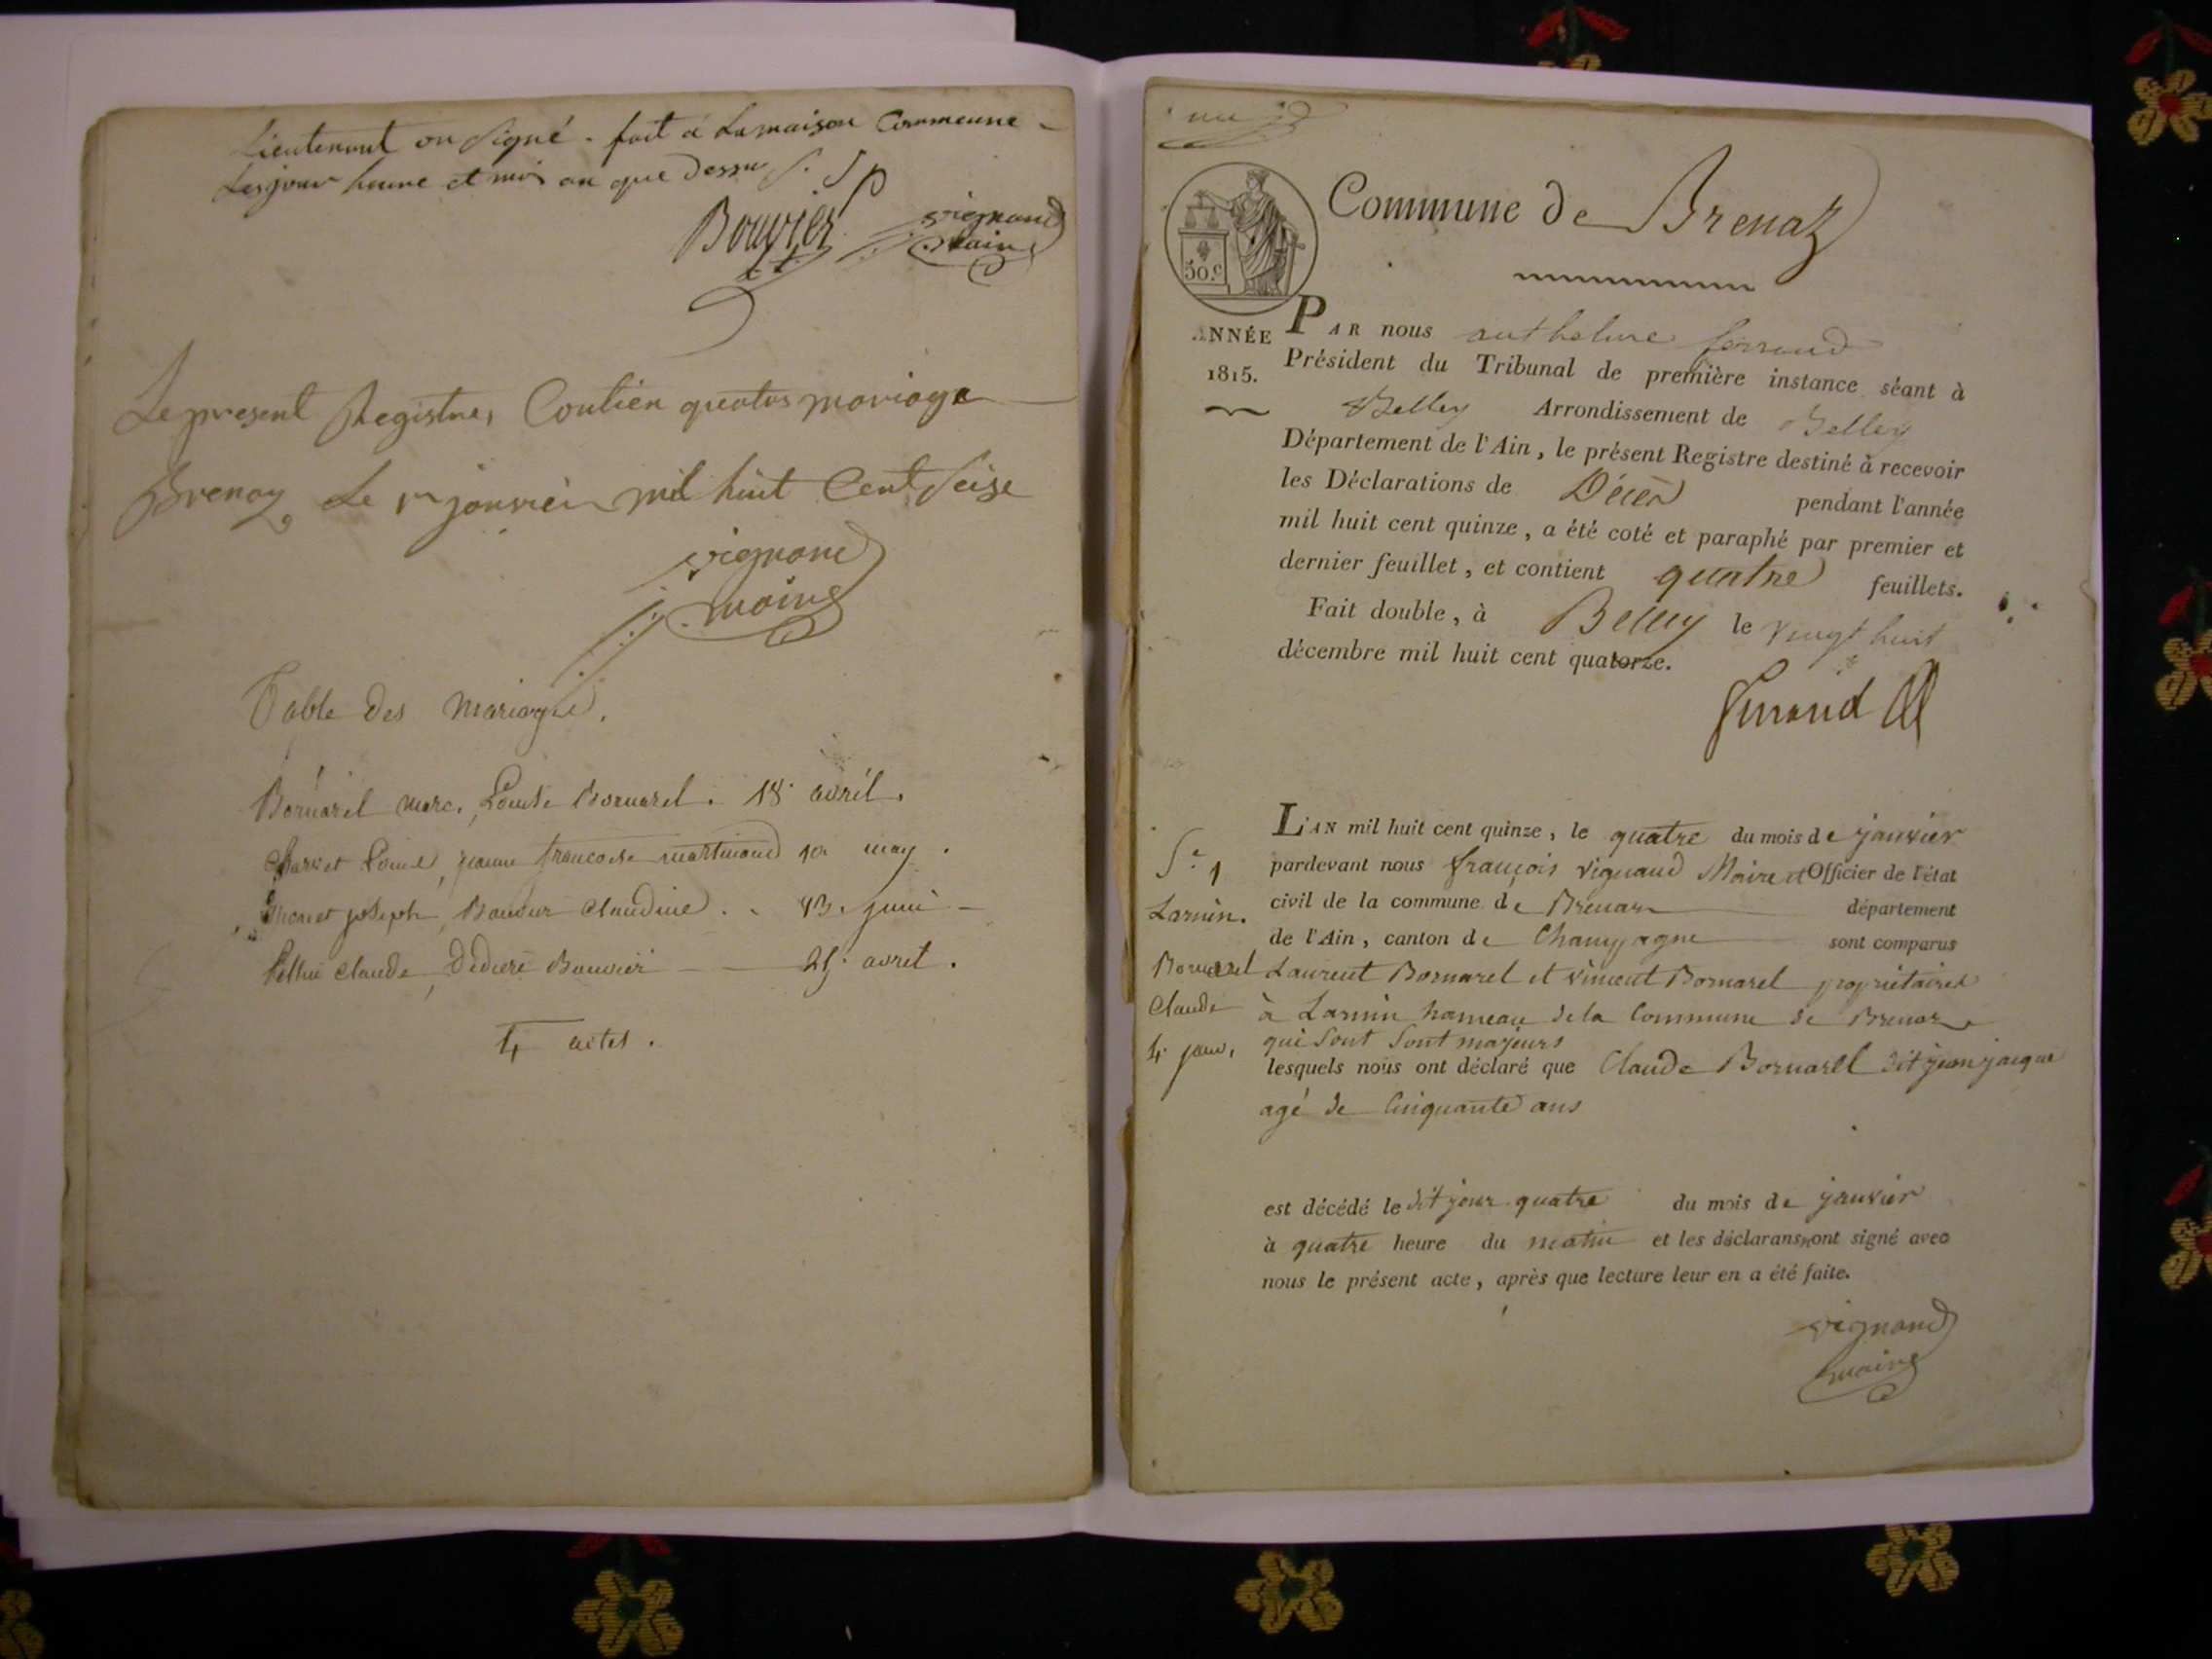 Lieutenant on signé . fait a Lamaison Commeune
Les jour heure et mois an que dessus
Bouvier vignand
maire
Le present Registre, Contien quatres mariage
Brenaz Le 1er janvier mil huit Cent seise
vignand
maire
Table des Mariages.
Bornarel marc, Louise Bornarel . 18 avril .
Charvet Louis, jeanne françoise martinand may .
joseph, Bouvier Claudine . . 13 juin
Claude, Bouvier 25 avril .
4 actes .
Commune de Brenaz
50.c
ANNÉE
1815.
PAR nous anthelme ferrand
Président du Tribunal de première instance séant à
Belley Arrondissement de Belley
Département de l'Ain, le présent Registre destiné à recevoir
les Déclarations de Décès pendant l'année
mil huit cent quinze, a été coté et paraphé par premier et
dernier feuillet, et contient quatre feuillets.
Fait double, à Belley le vingt huit
décembre mil huit cent quatorze.
L'AN mil huit cent quinze, le quatre du mois de janvier
pardevant nous françois vignand Maire et Officier de l'état
civil de la commune de Brenaz département
de l'Ain, canton de Champagne sont comparus
Laurent Bornarel et vincent Bornarel propriétaires
à Larmin hameau de la Commune de Brenaz
qui sont sont majeurs
lesquels nous ont déclaré que Claude Bornarel dit jean jacque
agé de Cinquante ans
est décédé le dit jour quatre du mois de janvier
à quatre heure du matin et les déclarans ont signé avec
nous le présent acte, après que lecture leur en a été faite.
vignand
maire
1
Larmin.
Bornarel
Claude
4 janv.